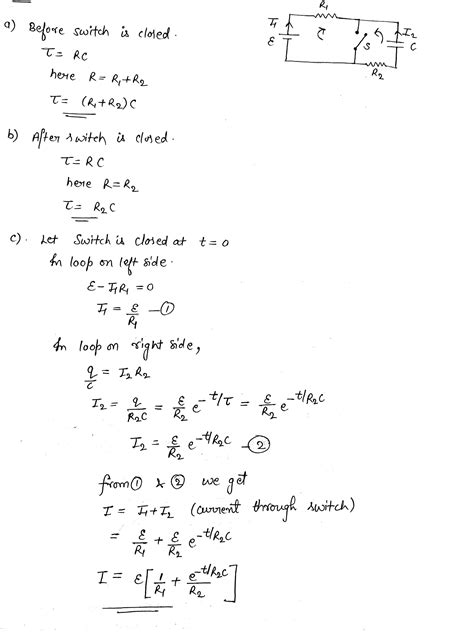 R₁
I₁
ε
S
I₂
C
R₂
a) Before switch is closed.
τ = RC
here R = R₁+R₂
τ = (R₁+R₂)C
b) After switch is closed.
τ = RC
here R = R₂
τ = R₂C
c). Let Switch is closed at t = 0
In loop on left side.
ε - I₁R₁ = 0
I₁ = ε/R₁ —①
In loop on right side,
q/C = I₂R₂
I₂ = q/R₂C = ε/R₂ e^-t/τ = ε/R₂ e^-t/R₂C
I₂ = ε/R₂ e^-t/R₂C —②
from ① & ② we get
I = I₁+I₂ (current through switch)
= ε/R₁ + ε/R₂ e^-t/R₂C
I = ε[1/R₁ + e^-t/R₂C/R₂]